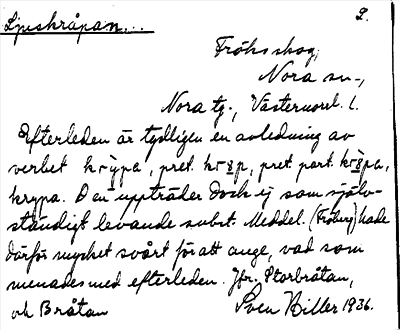 Ljuskråpan... 2.
Fröksskog,
Nora sn.,
Nora tg., Västernorrl. l.
Efterleden är tydligen en avledning av
verbet krypa, pret. krøp, pret. part. krøpa,
krypa. Den uppträder dock ej som själv-
ständigt levande subst. Meddel. (Fröberg) hade
därför mycket svårt för att ange, vad som
menades med efterleden. Jfr. Storbråtan,
och Bråtan Sven Hiller 1936.